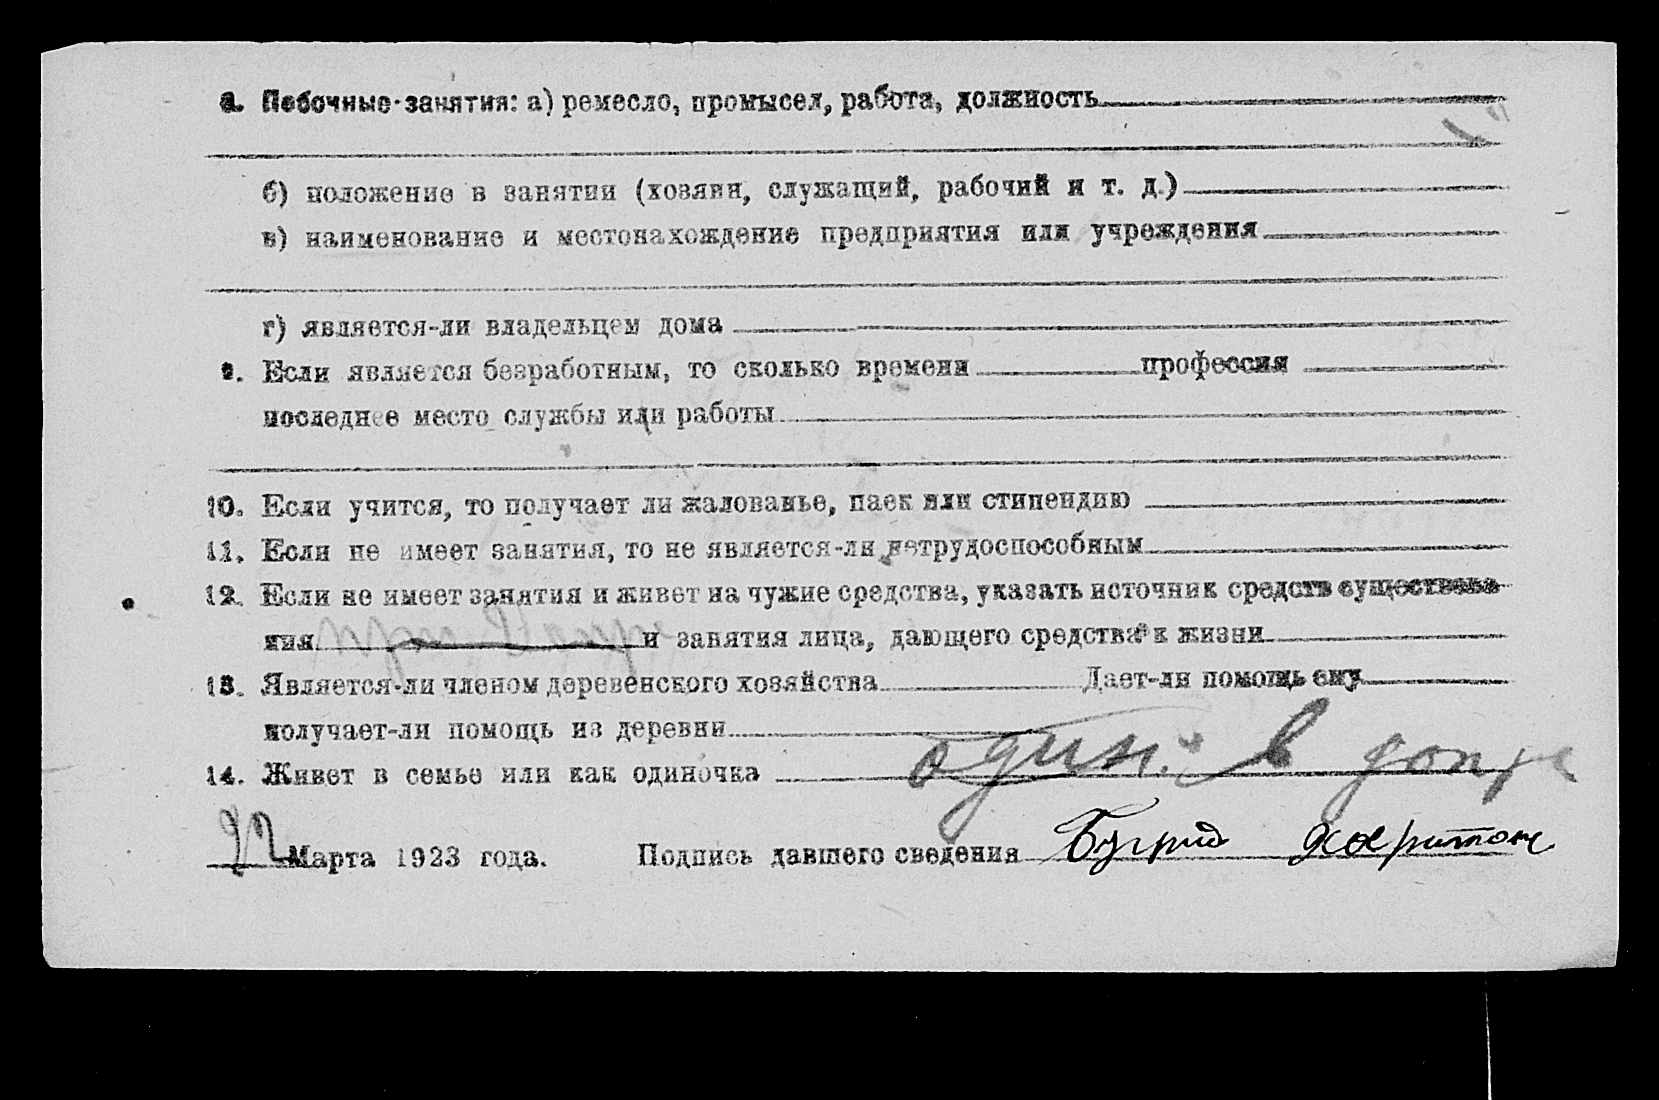 8. Побочные занятия: а) ремесло, промысел, работа, должность
б) положение в занятии (хозяин, служащий, рабочий и т. д.)
в) наименование и местонахождение предприятия или учреждения
г) является-ли владельцем дома
9. Если является безработным, то сколько времени профессия
последнее место службы или работы
10. Если учится, то получает ли жалованье, паек или стипендию
11. Если не имеет занятия, то не является-ли нетрудоспособным
12. Если не имеет занятия и живет на чужие средства, указать источник средств существова-
ния и занятия лица, дающего средства к жизни
13. Является-ли членом деревенского хозяйства Дает-ли помощь ему
получает-ли помощь из деревни
14. Живет в семье или как одиночка один. в допре
22 Марта 1923 года. Подпись давшего сведения Харитон